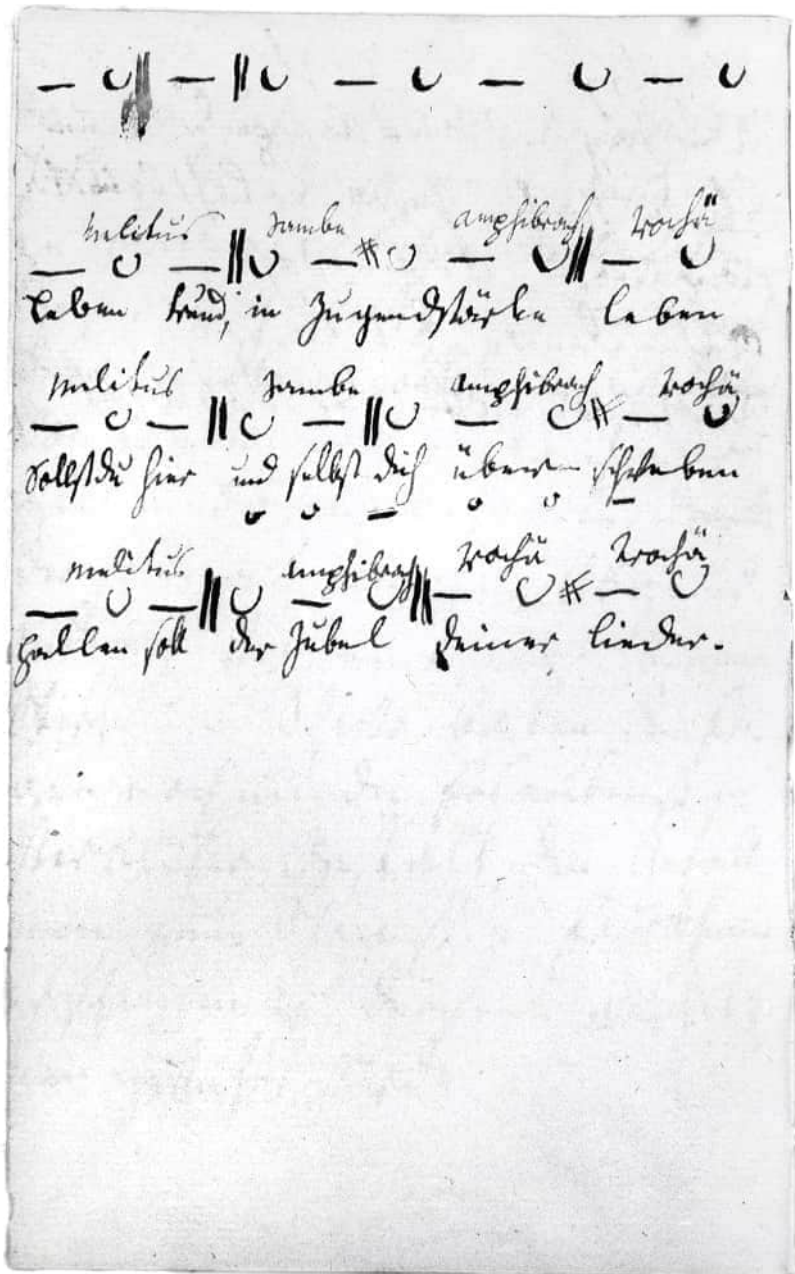 — ∪ ||| — || ∪ — ∪ — ∪ — ∪
melitus Jambe amphibrach Trochä
— ∪ — ||| ∪ — # ∪ — ∪ ||| — ∪
Leben in Jugendstärke leben
melitus Jambe amphibrach Trochä
— ∪ — || ∪ — || ∪ — ∪ # — ∪
Sollst du hier und selbst dich über— schweben
∪ ∪ — ∪ ∪ —
melitus amphibrach Trochä Trochä
— ∪ — ||| ∪ — ∪ ||| — ∪ # — ∪
Hallen soll der Jubel deiner Lieder.